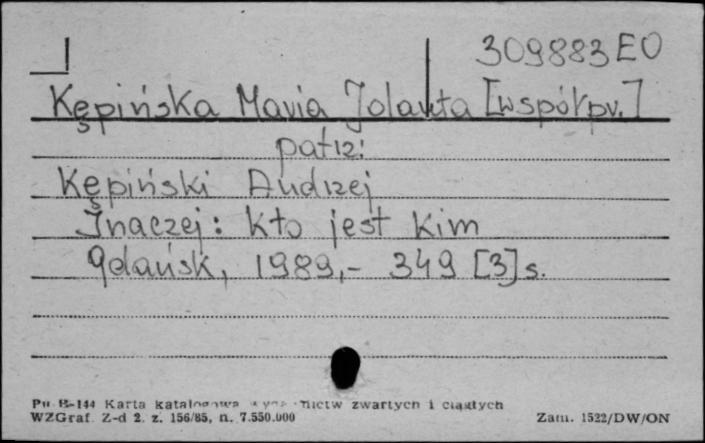 309883 EO
Kępińska Maria Jolanta [współpr.]
patrz:
Kępiński Andrzej
Inaczej: kto jest kim
Gdańsk, 1989,- 349 [3] s.
Pu B-144 Karta katalogowa zwartych i ciągłych
WZGraf. Z-d 2. z. 156/85, n. 7.550.000 Zam. 1522/DW/ON